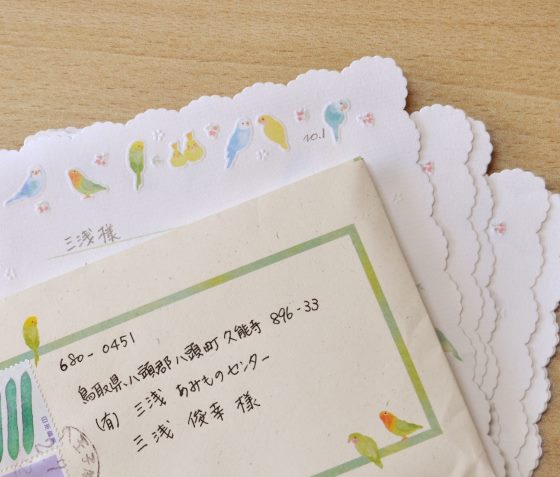 10.1
三浅様
680-0451
鳥取県八頭郡八頭町久能寺 896-33
(有) 三浅 あみものセンター
三浅 俊幸 様
日本郵便